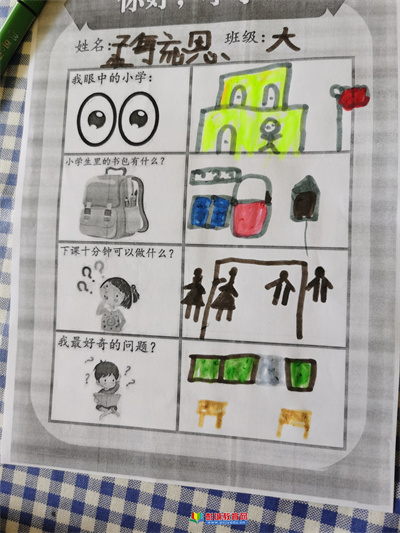 你好，小学
姓名: 孟 充恩 班级: 大
我眼中的小学：
小学生里的书包有什么？
下课十分钟可以做什么？
我最好奇的问题？